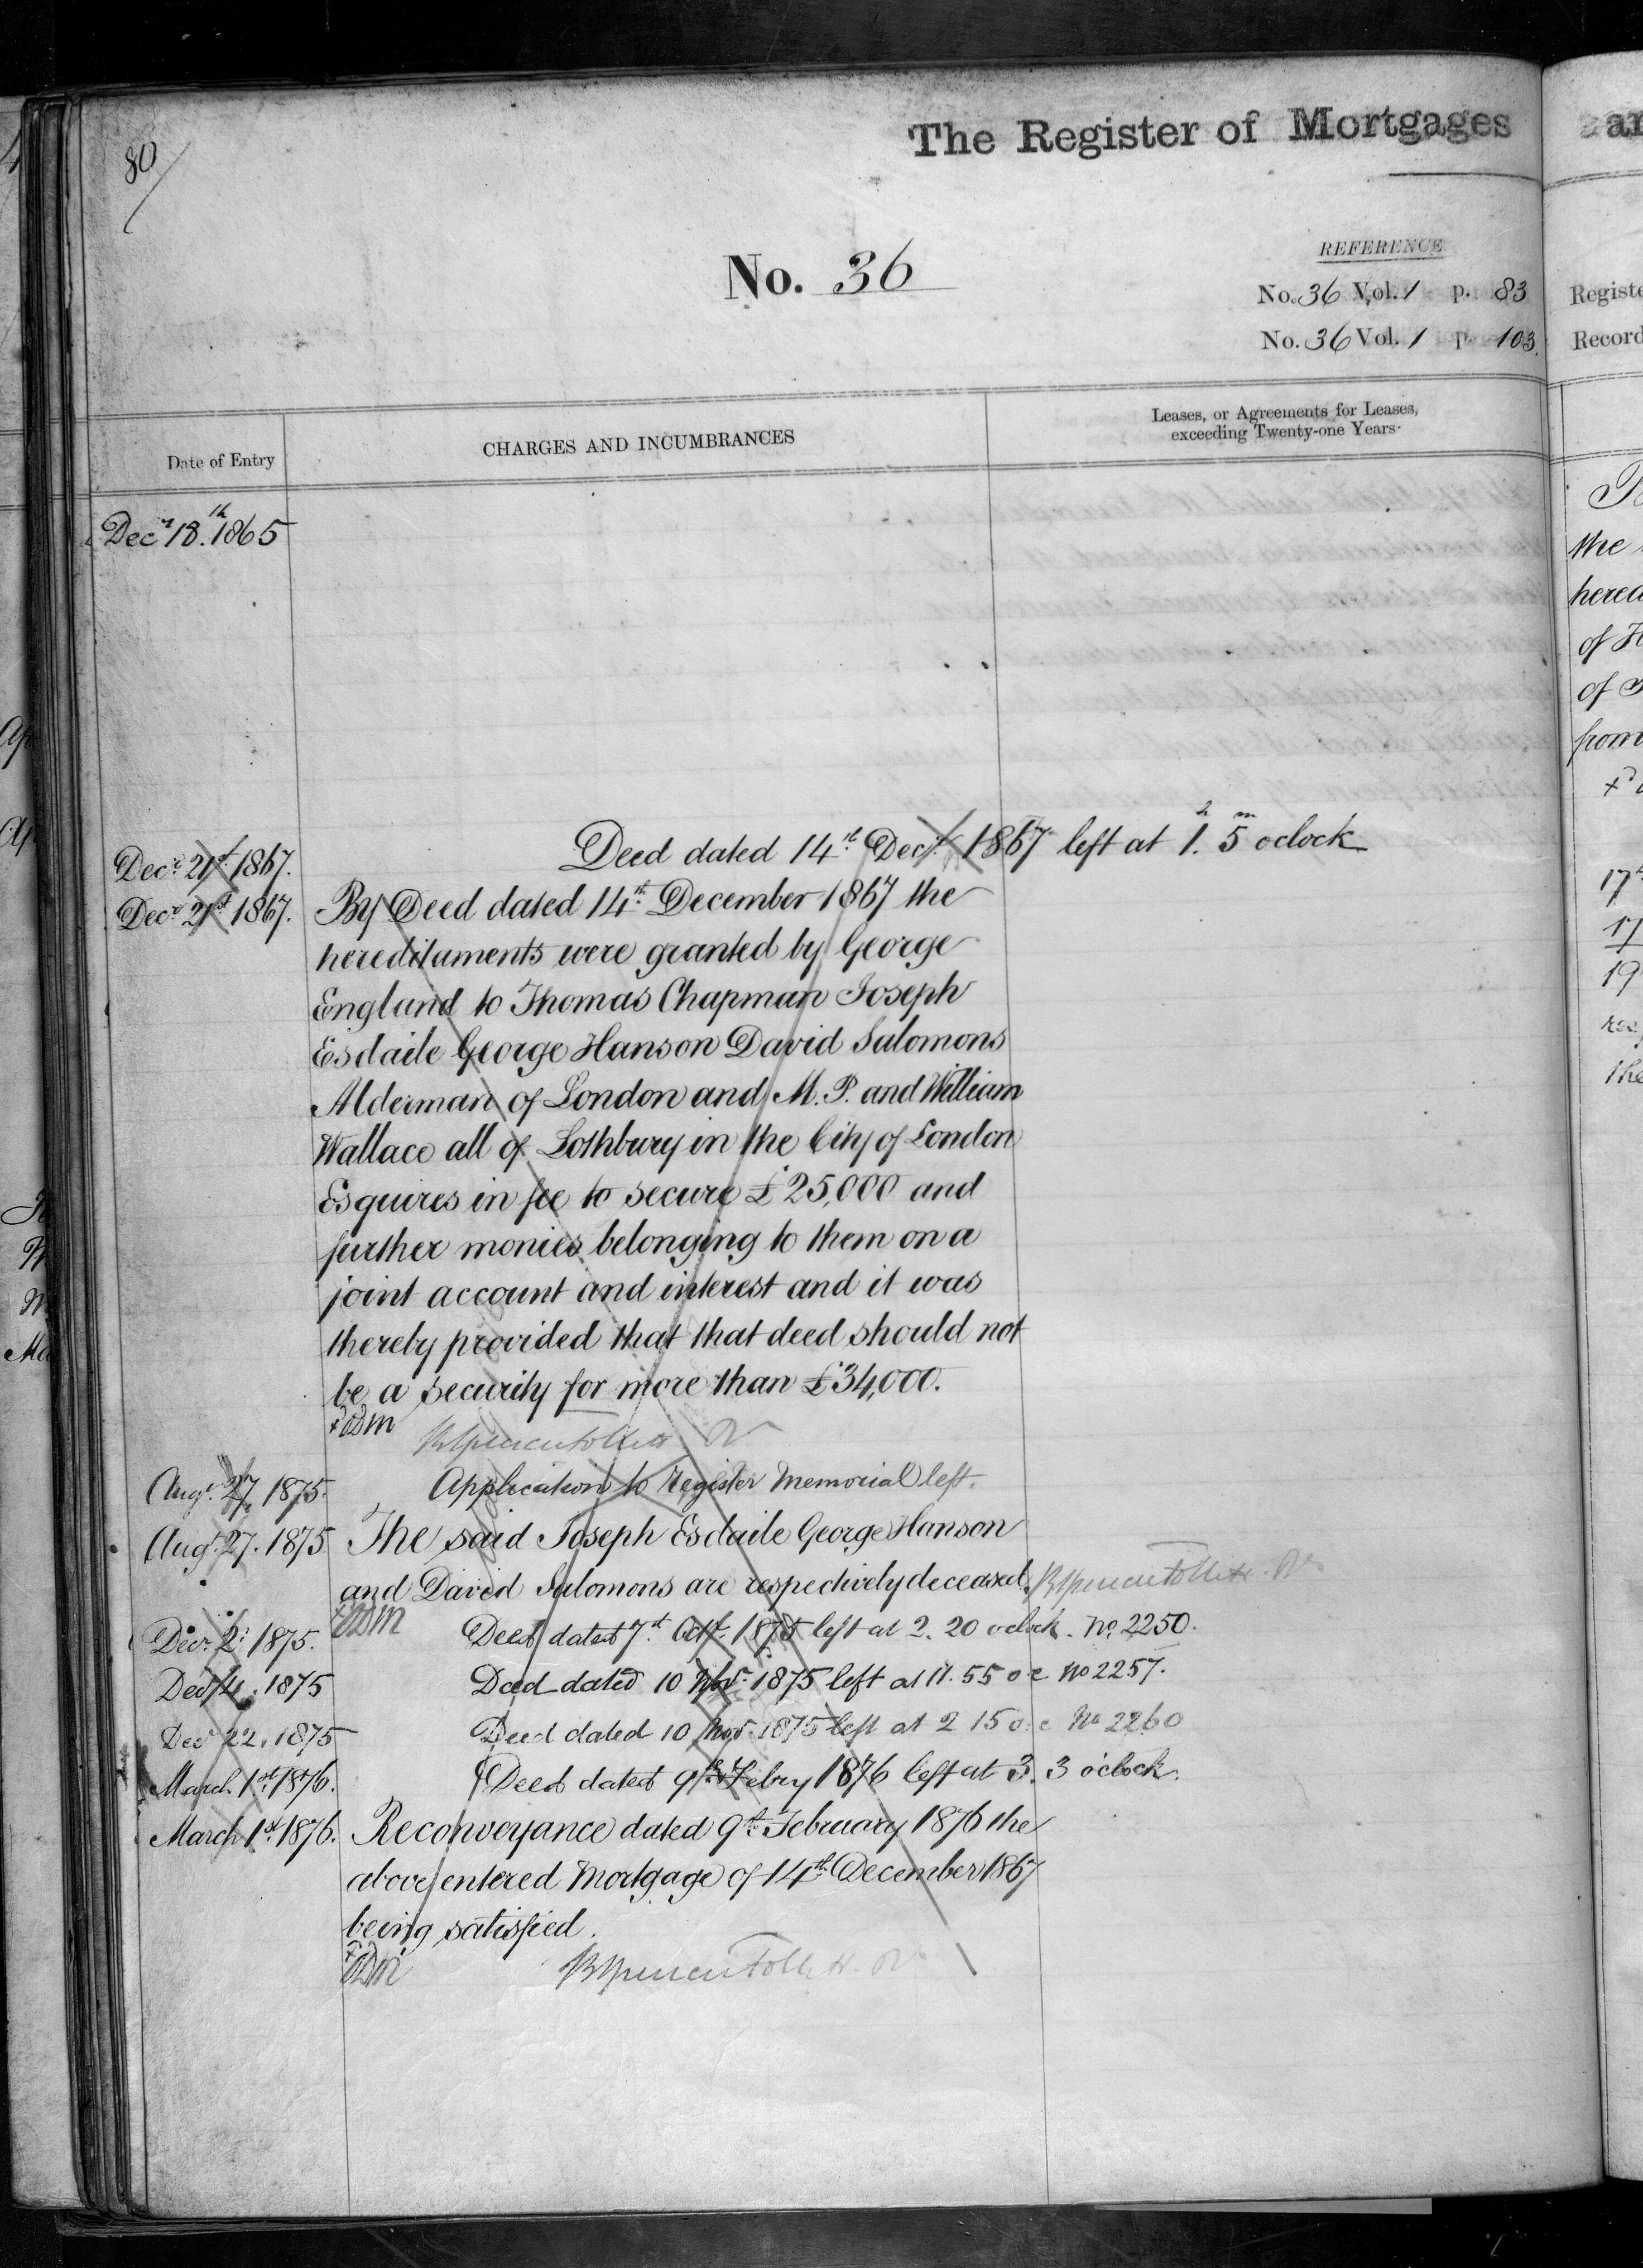 80
The Register of Mortgages
No. 36
REFERENCE
No. 36 Vol. 1 p. 83
No. 36 Vol. 1 p. 103
Date of Entry
CHARGES AND INCUMBRANCES
Leases, or Agreements for Leases,
exceeding Twenty-one Years.
Decr 18.th 1865
Decr 21st 1867. Deed dated 14th Decr 1867 left at 1.h 5m oclock
Decr 21st 1867. By Deed dated 14th December 1867 the
hereditaments were granted by George
England to Thomas Chapman Joseph
Esdaile George Hanson David Salomons
Alderman of London and M. P. and William
Wallace all of Lothbury in the City of London
Esquires in fee to secure £25,000 and
further monies belonging to them on a
joint account and interest and it was
thereby provided that that deed should not
be a security for more than £34,000.
Augt 27, 1875. Application to Register Memorial left.
Augt 27. 1875 The said Joseph Esdaile George Hanson
and David Salomons are respectively deceased.
Decr 2. 1875. Deed dated 7th Octr 1875 left at 2. 20 oclock. No. 2250.
Decr 4. 1875 Deed dated 10 Novr 1875 left at 11. 55 o c No 2257.
Decr 22, 1875 Deed dated 10 Novr 1875 left at 2 15 o. c No 2260
March 1st 1876. Deed dated 9th Febry 1876 left at 3. 3 o'clock.
March 1st 1876. Reconveyance dated 9th February 1876 the
above entered Mortgage of 14th December 1867
being satisfied.
Registe
Record
the
hered
of H
from
17
17
19
the